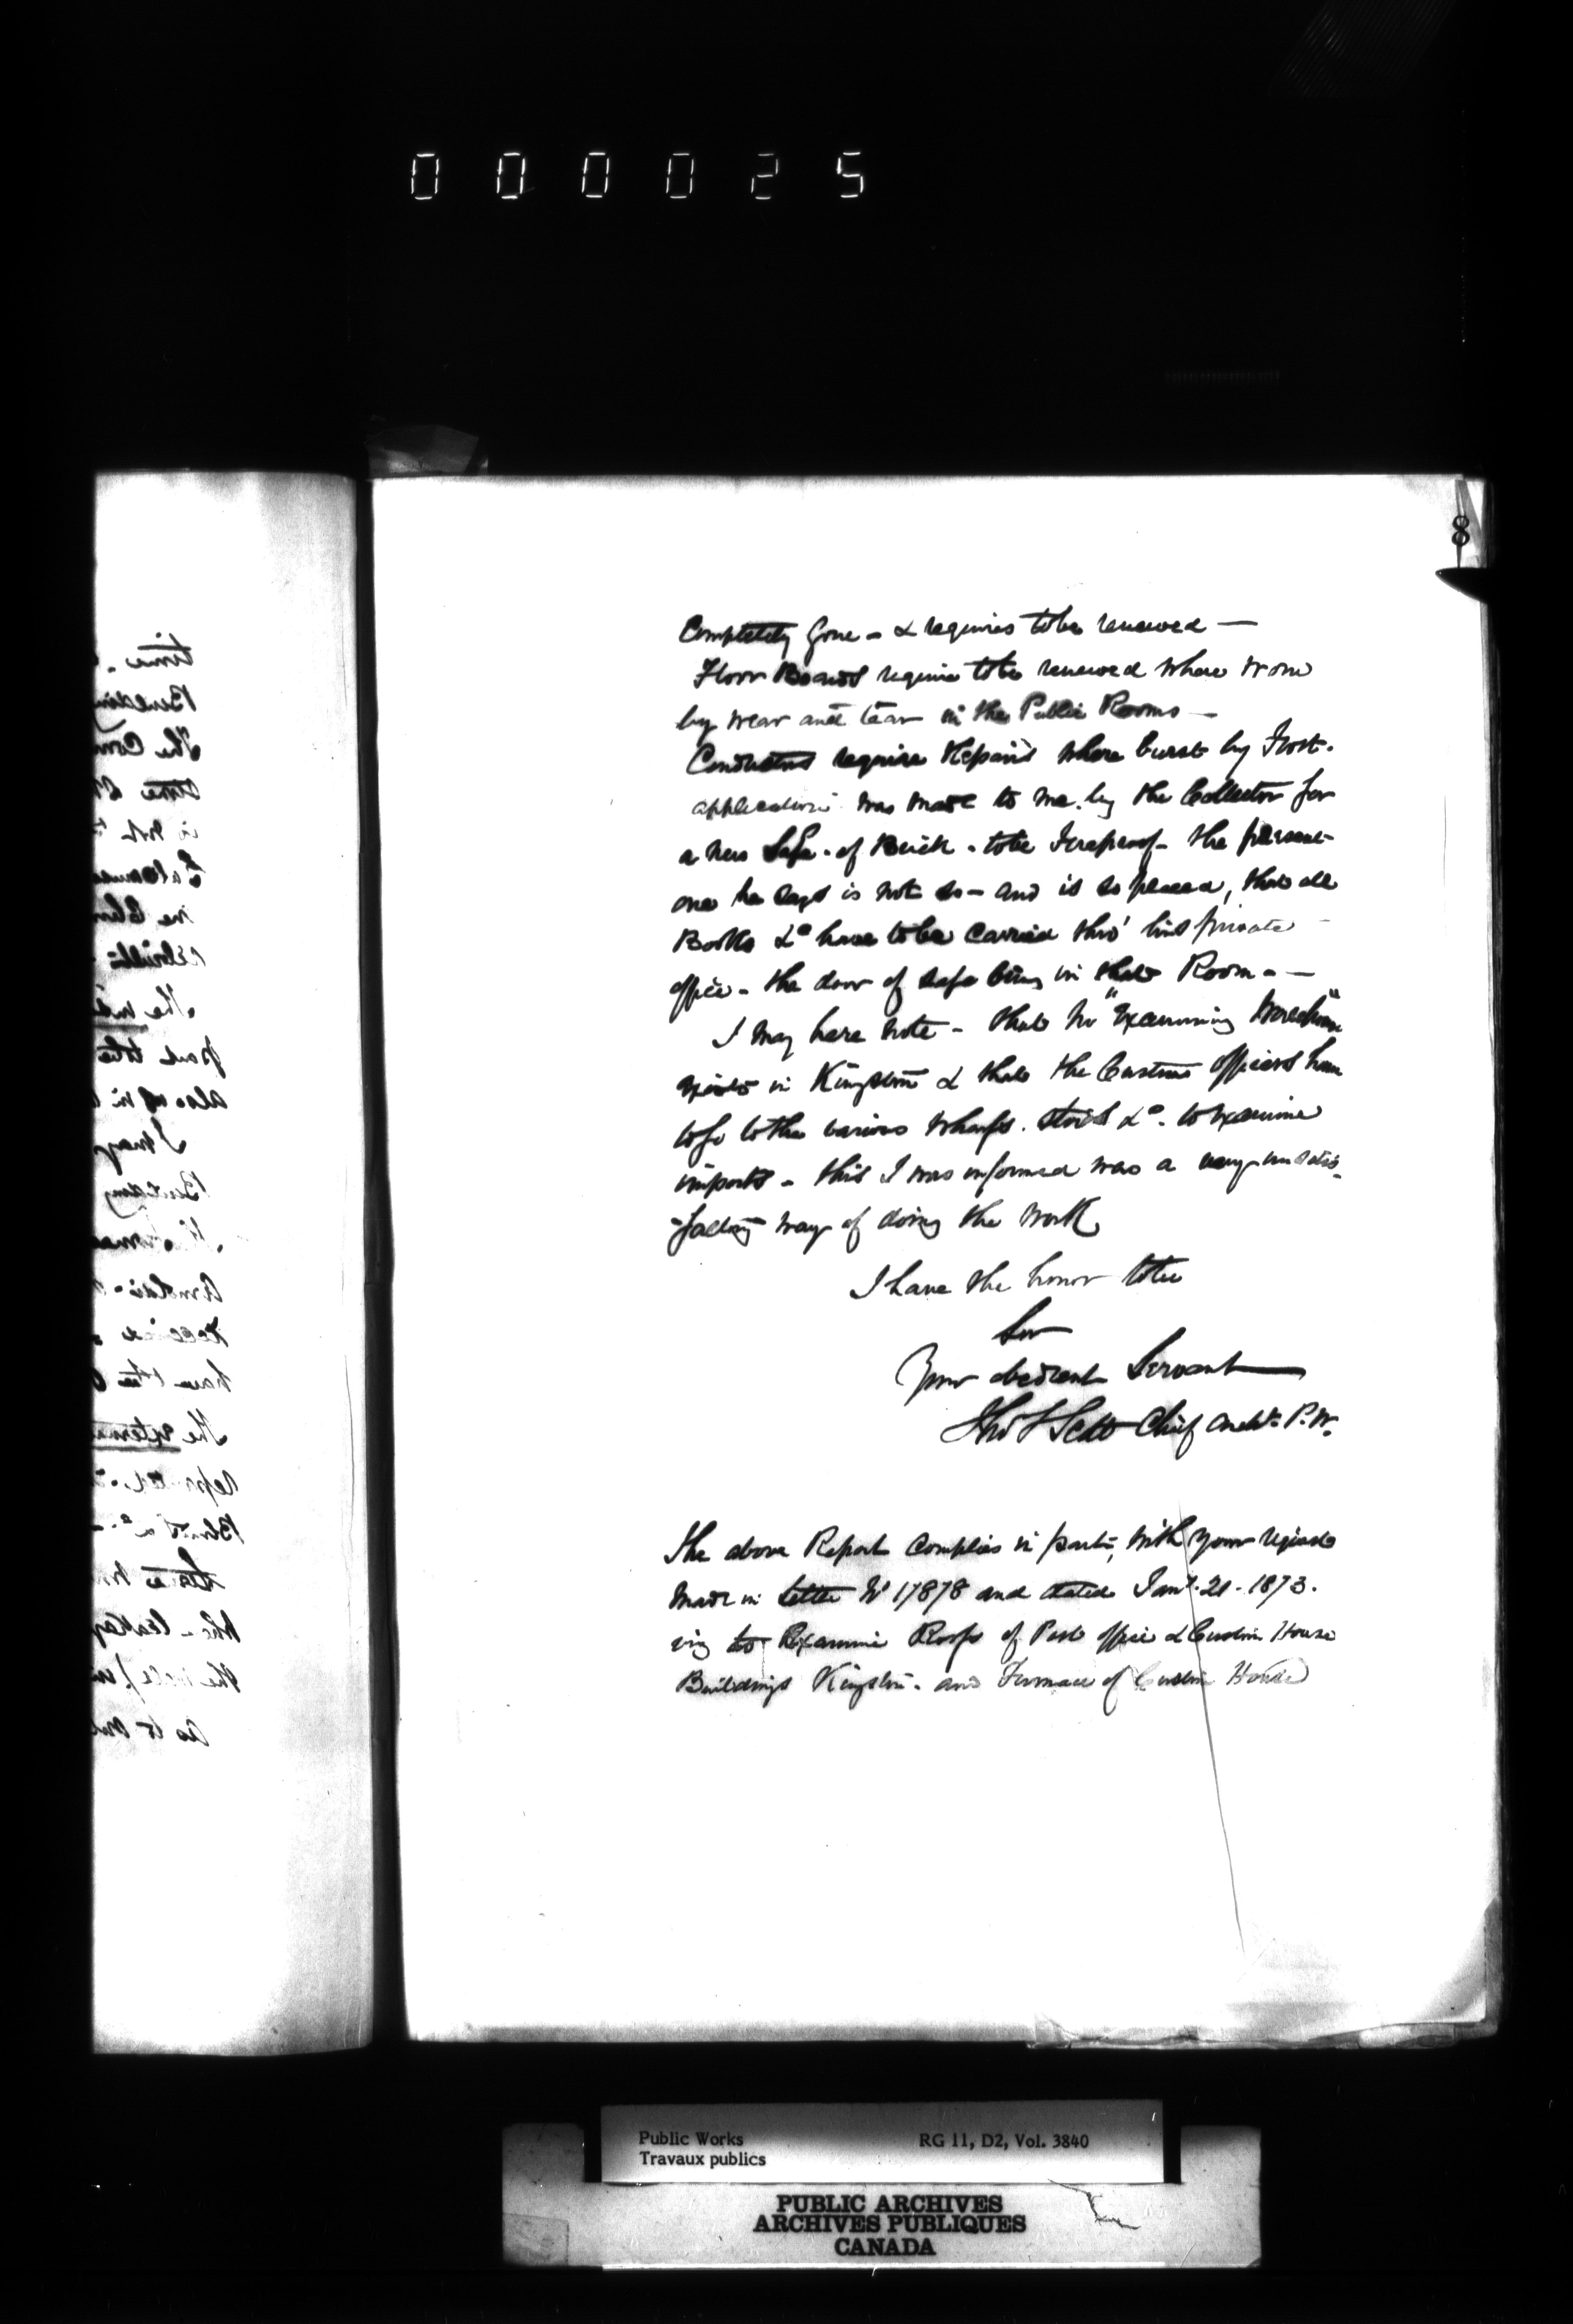 000025
8
Completely gone - & requires to be renewed —
Floor Boards require to be renewed where worn
by wear and tear in the Public Rooms —
Conductors require Repairs where burst by Frost.
application was made to me by the Collector for
a new Safe - of Brick - to be Fireproof - the present
one he says is not so - and is so placed, that all
Books &c have to be carried thro' his private
office - the door of safe being in that Room - —
I may here note - that no "Examining Warehouse"
exists in Kingston & that the Customs officers have
to go to the various wharfs. stores &c. to examine
imports - this I was informed was a very unsatis-
-factory way of doing the work
I have the honor to be
Sir
Your obedient Servant
Thos S Scott Chief Archt. P.W.
The above Report complies in part, with your request
made in letter No 17878 and dated Jany. 21 - 1873.
to Examine Roofs of Post office & Custom House
Buildings Kingston - and Furnace of Custom House
Public Works
Travaux publics
RG 11, D2, Vol. 3840
PUBLIC ARCHIVES
ARCHIVES PUBLIQUES
CANADA